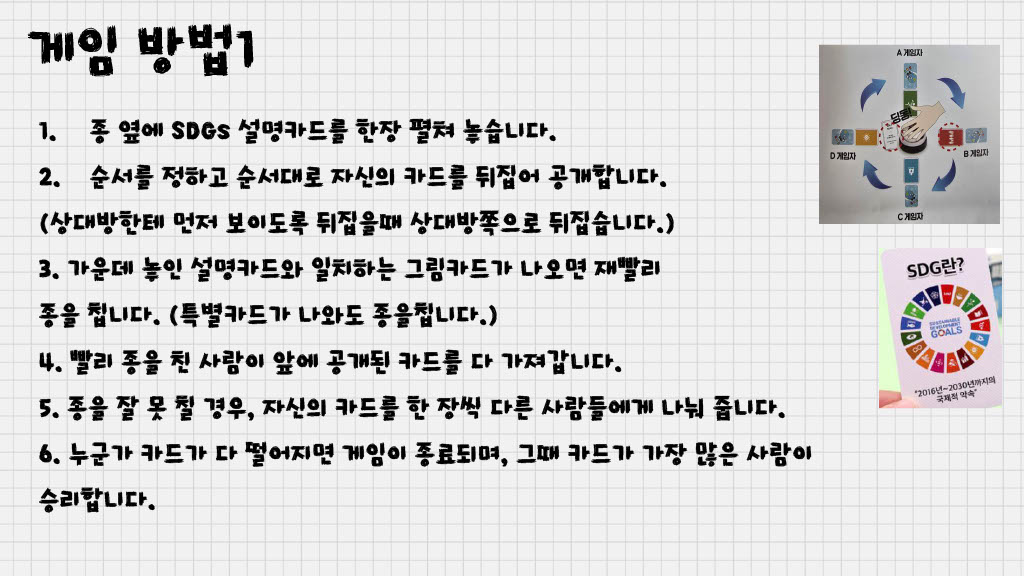 게임 방법1
1. 종 옆에 SDGs 설명카드를 한장 펼쳐 놓습니다.
2. 순서를 정하고 순서대로 자신의 카드를 뒤집어 공개합니다.
(상대방한테 먼저 보이도록 뒤집을때 상대방쪽으로 뒤집습니다.)
3. 가운데 놓인 설명카드와 일치하는 그림카드가 나오면 재빨리
종을 칩니다. (특별카드가 나와도 종을칩니다.)
4. 빨리 종을 친 사람이 앞에 공개된 카드를 다 가져갑니다.
5. 종을 잘 못 칠 경우, 자신의 카드를 한 장씩 다른 사람들에게 나눠 줍니다.
6. 누군가 카드가 다 떨어지면 게임이 종료되며, 그때 카드가 가장 많은 사람이
승리합니다.
A 게임자
딩동
D 게임자
B 게임자
C 게임자
SDG란?
SUSTAINABLE
DEVELOPMENT
GOALS
"2016년~2030년까지의
국제적 약속"